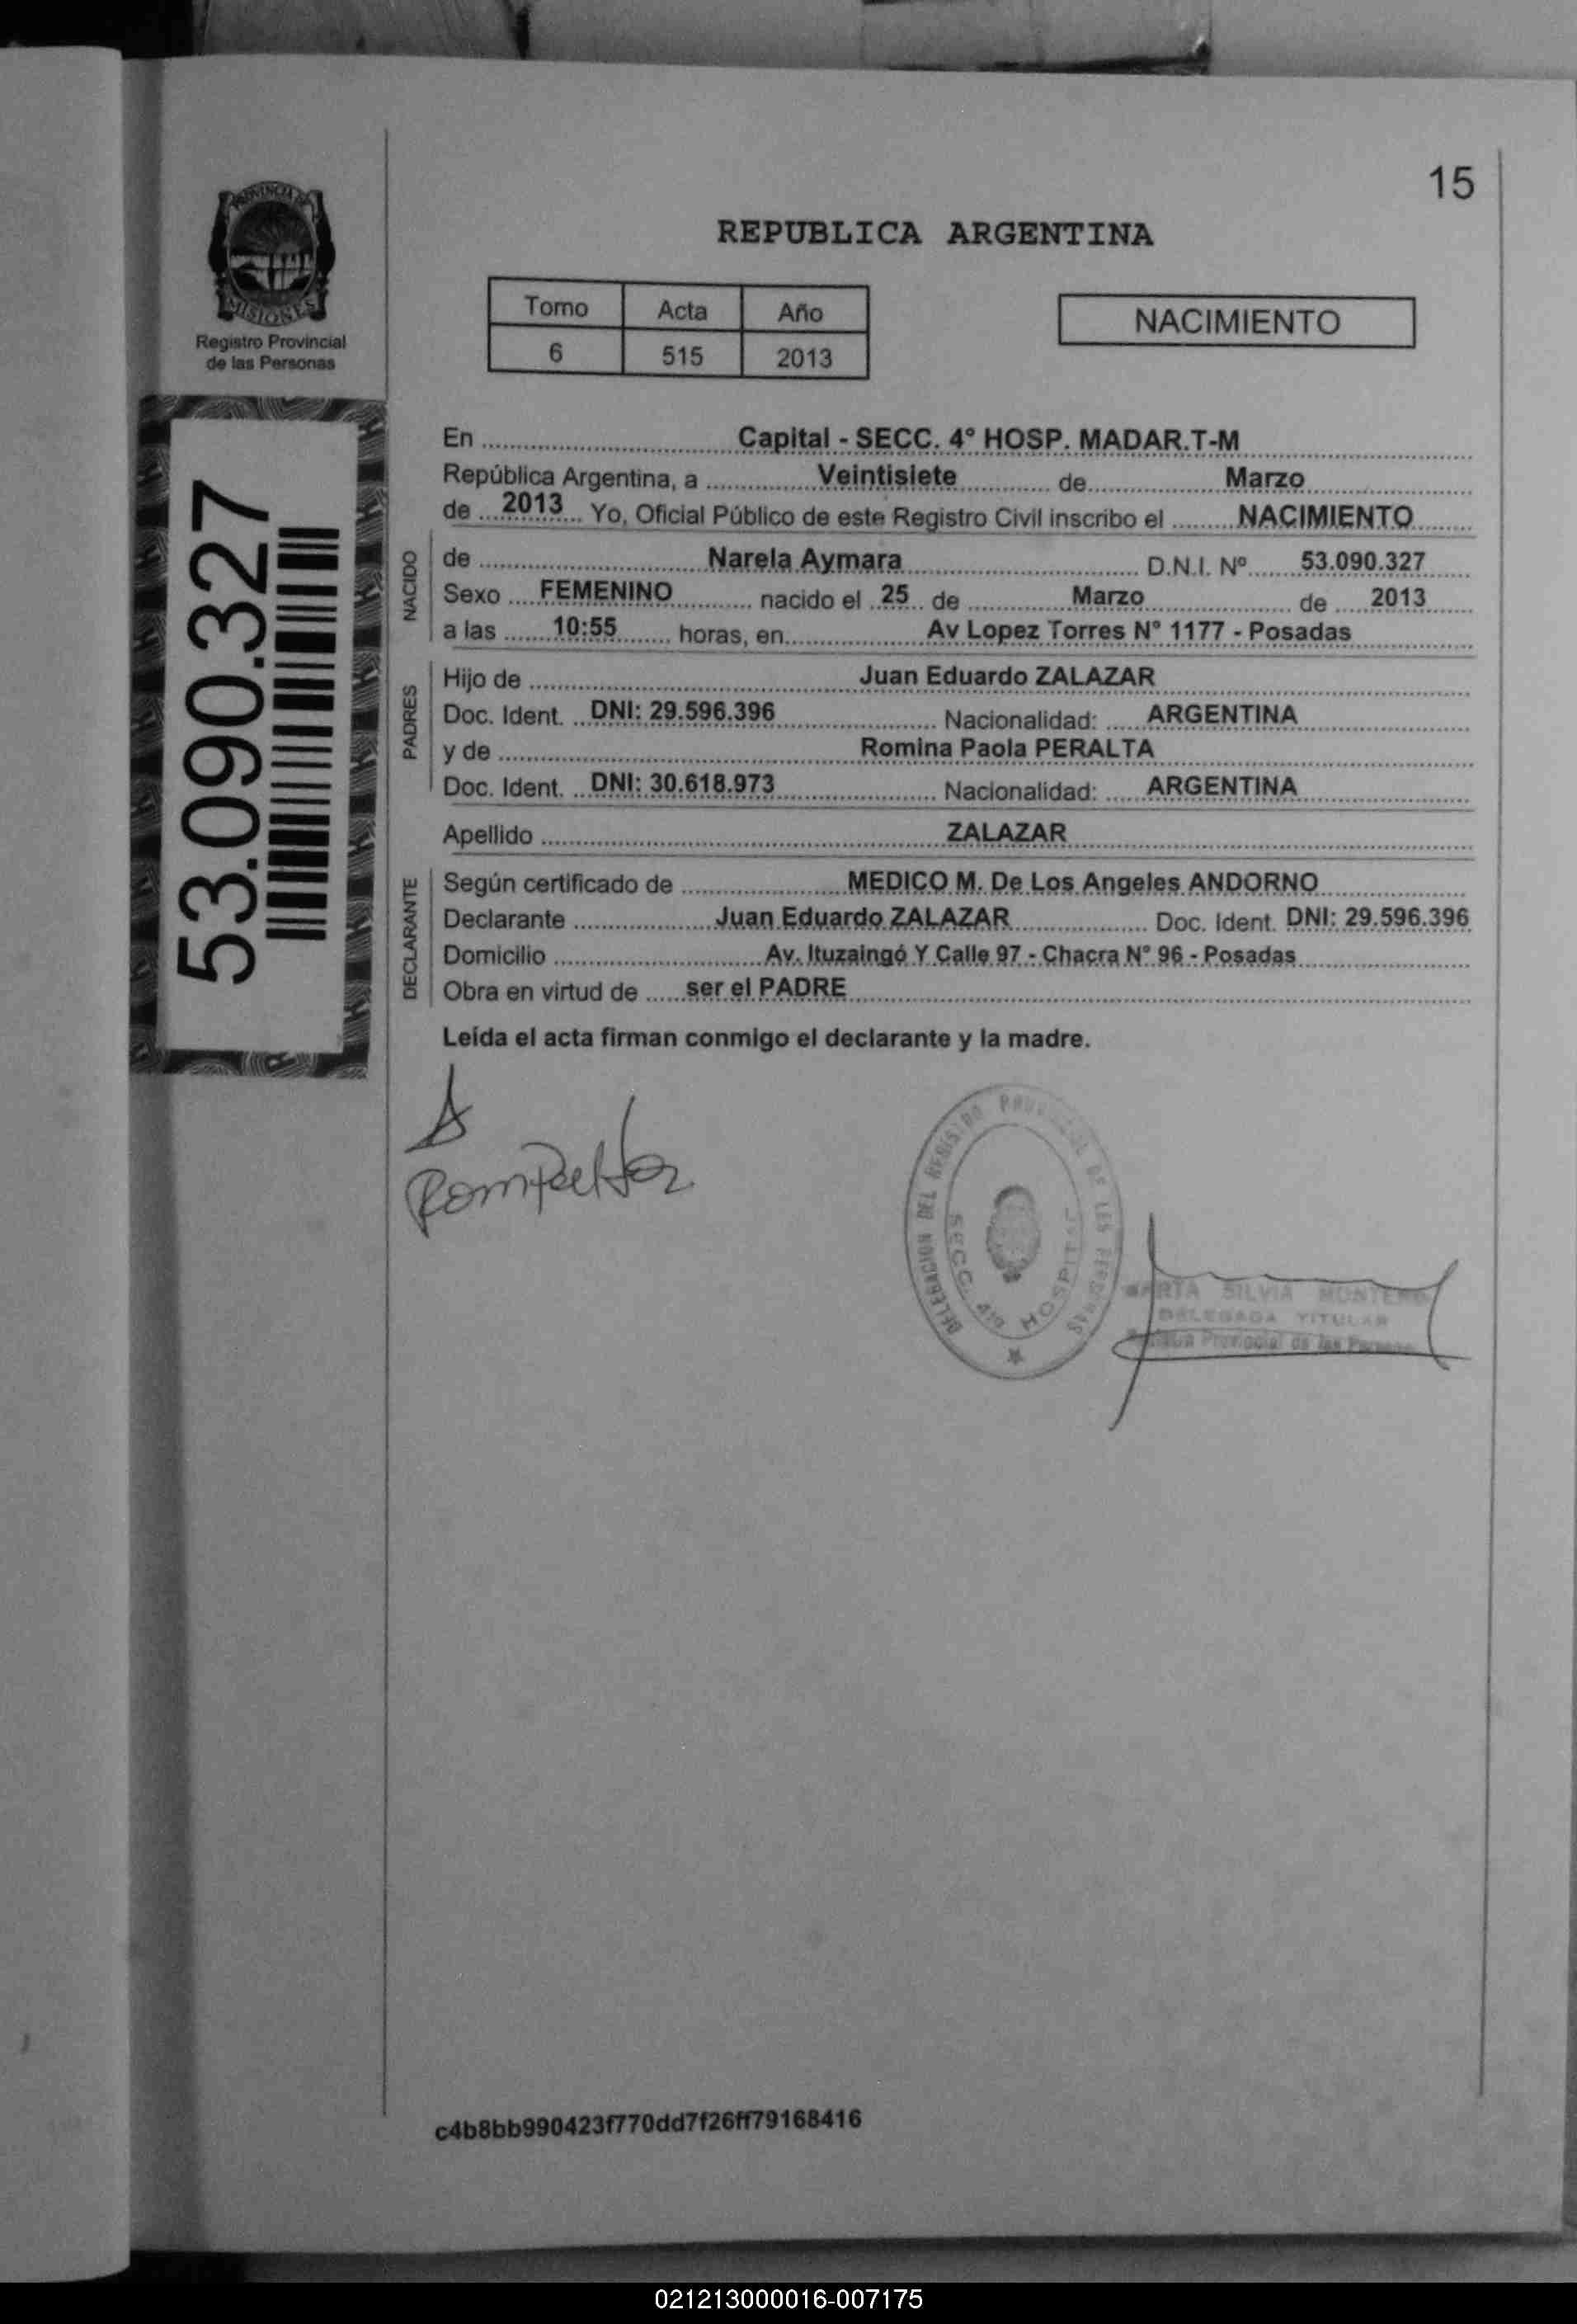 15
PROVINCIA DE
MISIONES
Registro Provincial
de las Personas
REPUBLICA ARGENTINA
Tomo Acta Año
6 515 2013
NACIMIENTO
53.090.327
En Capital - SECC. 4° HOSP. MADAR.T-M
República Argentina, a Veintisiete de Marzo
de 2013 Yo, Oficial Público de este Registro Civil inscribo el NACIMIENTO
NACIDO
de Narela Aymara D.N.I. Nº 53.090.327
Sexo FEMENINO nacido el 25 de Marzo de 2013
a las 10:55 horas, en Av Lopez Torres N° 1177 - Posadas
PADRES
Hijo de Juan Eduardo ZALAZAR
Doc. Ident. DNI: 29.596.396 Nacionalidad: ARGENTINA
y de Romina Paola PERALTA
Doc. Ident. DNI: 30.618.973 Nacionalidad: ARGENTINA
Apellido ZALAZAR
DECLARANTE
Según certificado de MEDICO M. De Los Angeles ANDORNO
Declarante Juan Eduardo ZALAZAR Doc. Ident. DNI: 29.596.396
Domicilio Av. Ituzaingó Y Calle 97 - Chacra N° 96 - Posadas
Obra en virtud de ser el PADRE
Leída el acta firman conmigo el declarante y la madre.
DELEGACION DEL REGISTRO
SECC. HOSPITAL
SILVIA MONTERO
DELEGADA TITULAR
Provincial de las
c4b8bb990423f770dd7f26ff79168416
021213000016-007175